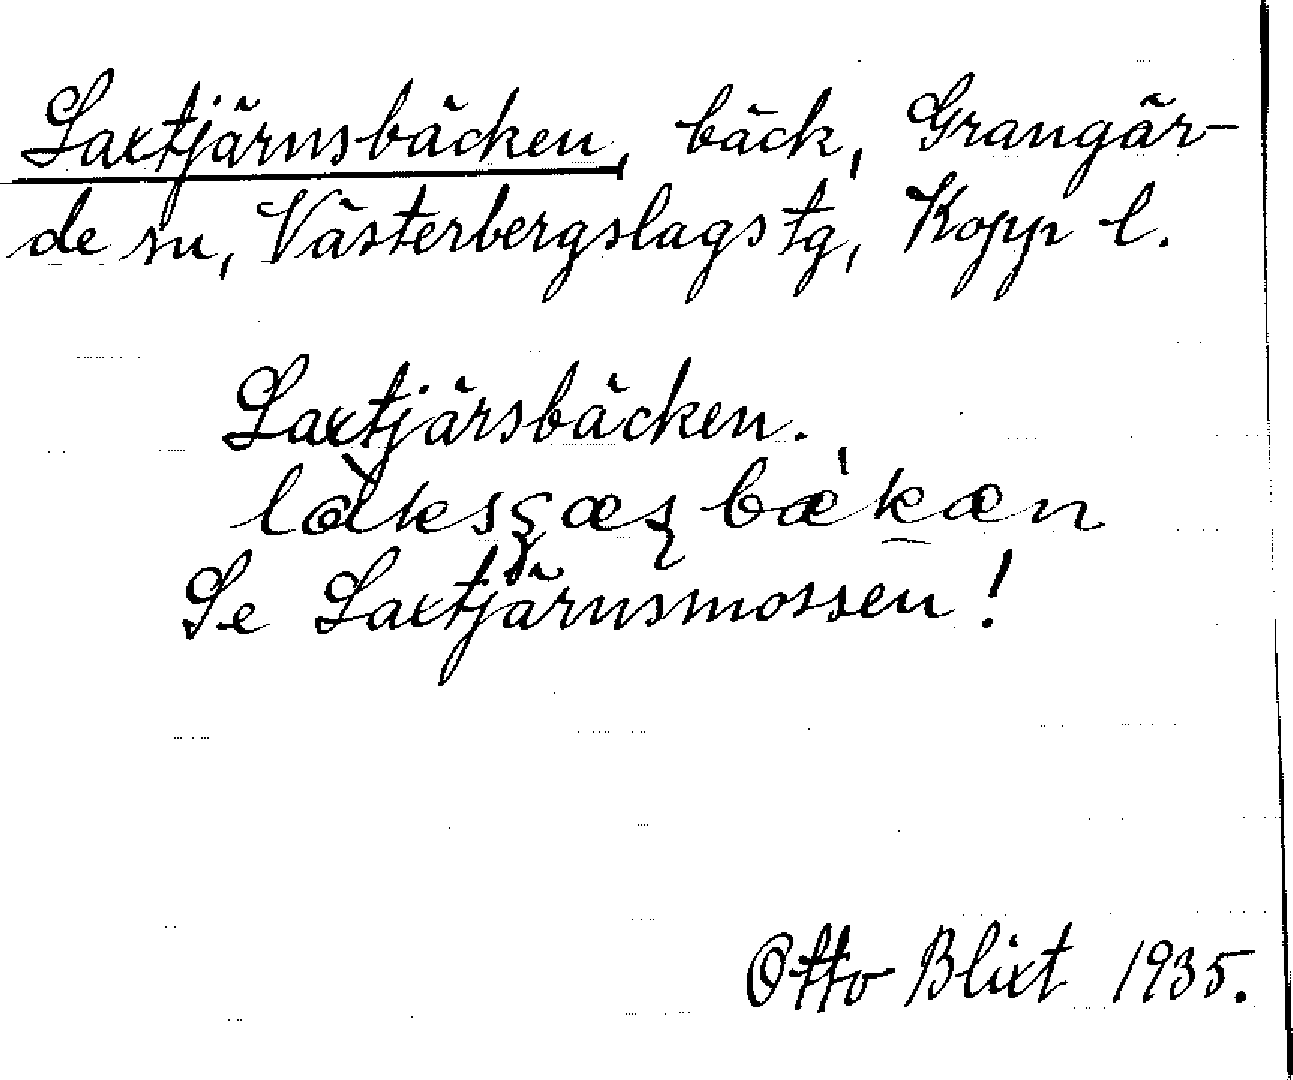 Laxtjärnsbäcken, bäck, Grangär-
de sn, Västerbergslags tg, Kopp l.
Laxtjärsbäcken.
Se Laxtjärnsmossen!
Otto Blixt 1935.